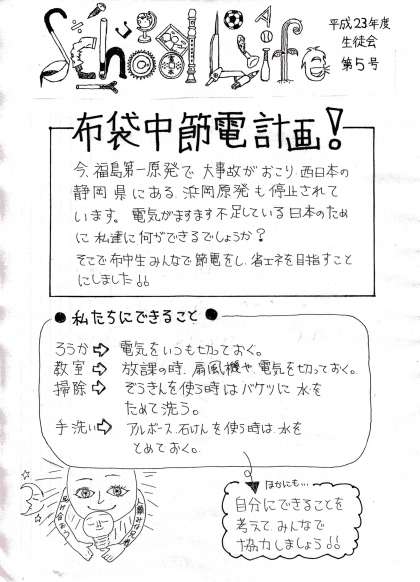 School Life
平成23年度
生徒会
第5号
布袋中節電計画!
今、福島第一原発で大事故がおこり、西日本の
静岡県にある、浜岡原発も停止されて
います。電気がますます不足している日本のため
に私達に何ができるでしょうか?
そこで布中生みんなで節電をし、省エネを目指すこと
にしました!!
●私たちにできること●
ろうか⇨電気をいつも切っておく。
教室⇨放課の時、扇風機や、電気を切っておく。
掃除⇨ぞうきんを使う時はバケツに水を
ためて洗う。
手洗い⇨アルボース、石けんを使う時は、水を
とめておく。
ほかにも…
自分にできることを
考えてみんなで
協力しましょう!!